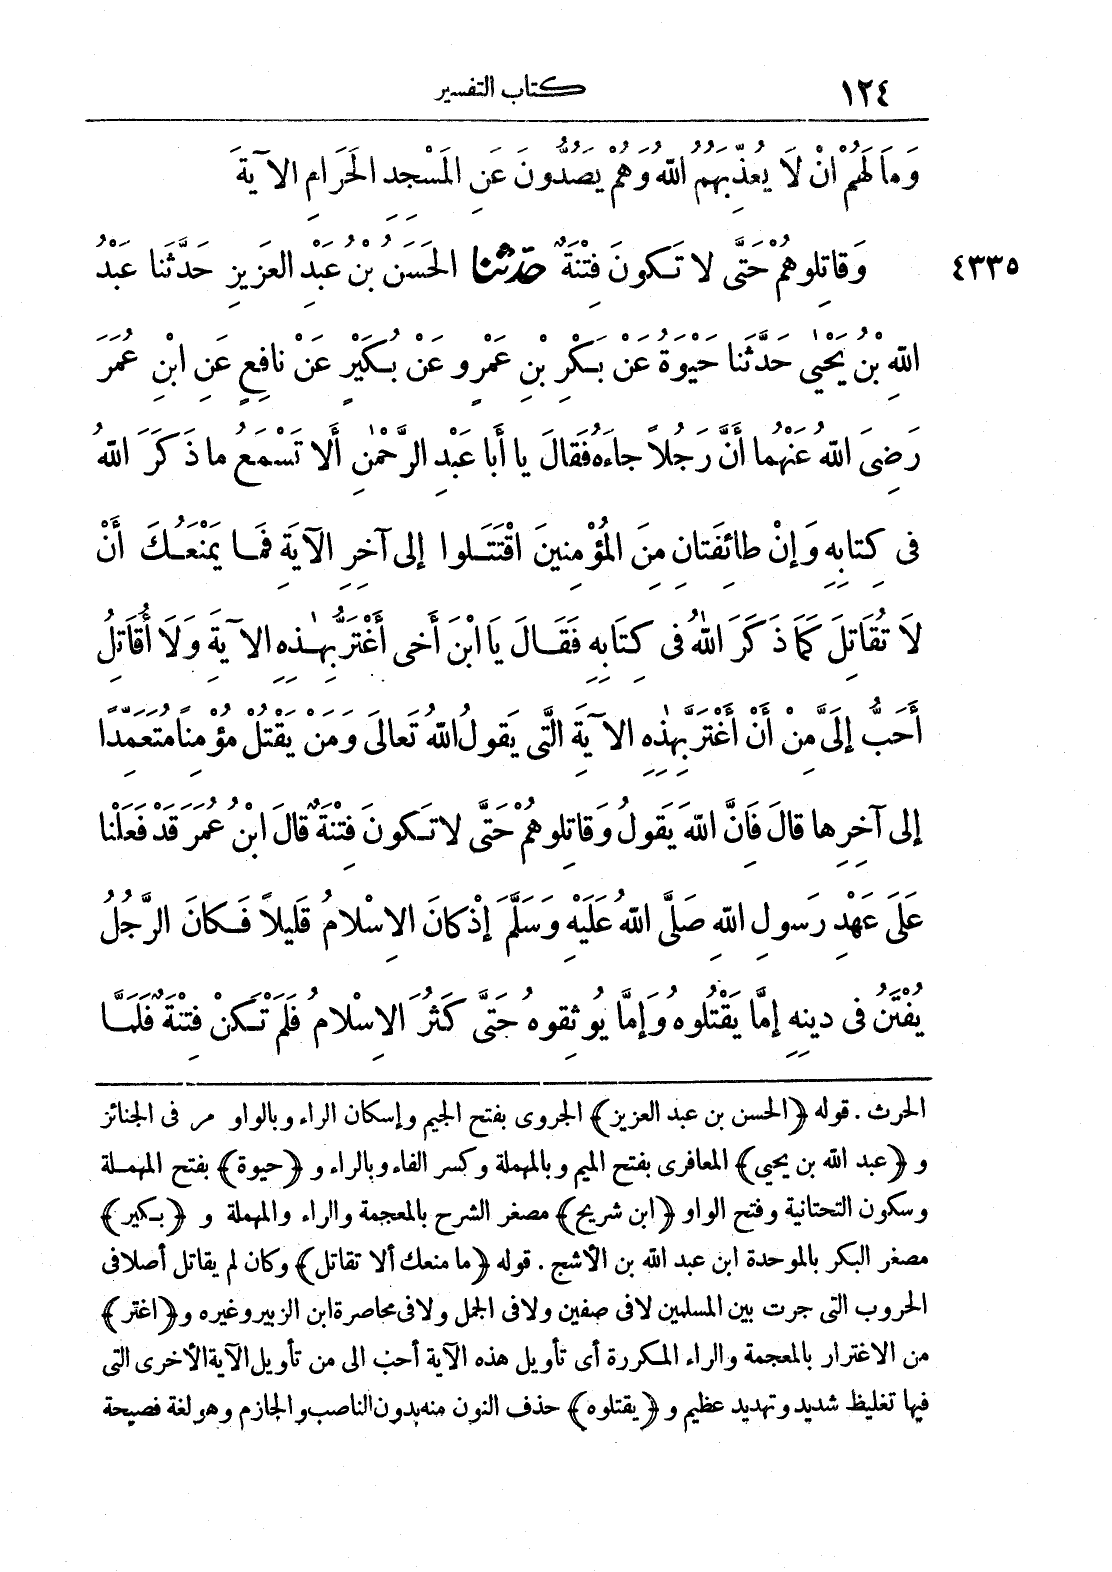 ١٢٤ كتاب التفسير
وَمَا لَهُمْ أَنْ لَا يُعَذِّبَهُمُ اللهُ وَهُمْ يَصُدُّونَ عَنِ الْمَسْجِدِ الْحَرَامِ الآيَةَ
٤٣٣٥ وَقَاتِلُوهُمْ حَتَّى لَا تَكُونَ فِتْنَةٌ حَدَّثَنَا الْحَسَنُ بْنُ عَبْدِ الْعَزِيزِ حَدَّثَنَا عَبْدُ
اللهِ بْنُ يَحْيَى حَدَّثَنَا حَيْوَةُ عَنْ بَكْرِ بْنِ عَمْرٍو عَنْ بُكَيْرٍ عَنْ نَافِعٍ عَنِ ابْنِ عُمَرَ
رَضِىَ اللهُ عَنْهُمَا أَنَّ رَجُلاً جَاءَهُ فَقَالَ يَا أَبَا عَبْدِ الرَّحْمٰنِ أَلَا تَسْمَعُ مَا ذَكَرَ اللهُ
فِى كِتَابِهِ وَإِنْ طَائِفَتَانِ مِنَ الْمُؤْمِنِينَ اقْتَتَلُوا إِلَى آخِرِ الْآيَةِ فَمَا يَمْنَعُكَ أَنْ
لَا تُقَاتِلَ كَمَا ذَكَرَ اللهُ فِى كِتَابِهِ فَقَالَ يَا ابْنَ أَخِى أَغْتَرُّ بِهٰذِهِ الآيَةِ وَلَا أُقَاتِلُ
أَحَبُّ إِلَىَّ مِنْ أَنْ أَغْتَرَّ بِهٰذِهِ الآيَةِ الَّتِى يَقُولُ اللهُ تَعَالَى وَمَنْ يَقْتُلْ مُؤْمِنًا مُتَعَمِّدًا
إِلَى آخِرِهَا قَالَ فَإِنَّ اللهَ يَقُولُ وَقَاتِلُوهُمْ حَتَّى لَا تَكُونَ فِتْنَةٌ قَالَ ابْنُ عُمَرَ قَدْ فَعَلْنَا
عَلَى عَهْدِ رَسُولِ اللهِ صَلَّى اللهُ عَلَيْهِ وَسَلَّمَ إِذْ كَانَ الإِسْلَامُ قَلِيلاً فَكَانَ الرَّجُلُ
يُفْتَنُ فِى دِينِهِ إِمَّا يَقْتُلُوهُ وَإِمَّا يُوثِقُوهُ حَتَّى كَثُرَ الإِسْلَامُ فَلَمْ تَكُنْ فِتْنَةٌ فَلَمَّا
الحرث . قوله ﴿الحسن بن عبد العزيز﴾ الجروى بفتح الجيم وإسكان الراء وبالواو مر فى الجنائز
و﴿عبد الله بن يحيى﴾ المعافرى بفتح الميم وبالمهملة وكسر الفاء وبالراء و﴿حيوة﴾ بفتح المهملة
وسكون التحتانية وفتح الواو ﴿ابن شريح﴾ مصغر الشرح بالمعجمة والراء والمهملة و﴿بكير﴾
مصغر البكر بالموحدة ابن عبد الله بن الأشج . قوله ﴿ما منعك ألا تقاتل﴾ وكان لم يقاتل أصلا فى
الحروب التى جرت بين المسلمين لا فى صفين ولا فى الجمل ولا فى محاصرة ابن الزبير وغيره و﴿اغتر﴾
من الاغترار بالمعجمة والراء المكررة أى تأويل هذه الآية أحب الى من تأويل الآية الأخرى التى
فيها تغليظ شديد وتهديد عظيم و﴿يقتلوه﴾ حذف النون منه بدون الناصب والجازم وهو لغة فصيحة